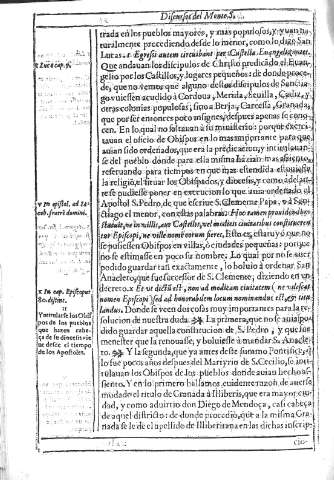 Discursos del Monte S.
trada en los pueblos mayores, y mas populosos, y yuan na
turalmente procediendo desde lo menor, como lo dize San
Lucas. t Egressi autem circuibant per Castella Euangelizantes.
Que andauan los discipulos de Christo predicãdo el Euan-
gelio por los Castillos, y lugares pequeños: de donde proce
de, que no vemos que alguno destos discipulos de Sanctia-
go viniessen acudido à Cordoua, Merida, Seuilla, Cadiz, y
otras colonias populosas, sino a Berja, Carcesa, Granada,
que por ser entonces poco insignes, despues apenas se cono-
cen. En lo qual no faltauan à su ministerio: porque exerci-
tauan el oficio de Obispos en lo mas importante para que
auian sido ordenados, que era la predicacion, y intitulauan
se del pueblo donde para ella misma hazian mas assiento,
reseruando para tiempos en que mas estendida estuuiesse
la religiõ, el situar los Obispados, y diocesis, y como adelan-
te se pudiesse poner en execucion lo que auia ordenado el
Apostol S. Pedro, de que escriue S. Clemente Papa, v a San-
ctiago el menor, con estas palabras: Hoc tamen prouidendum
statuit, ne in villis, aut Castellis, vel modicis ciuitatibus constituerentur
Episcopi, ne vile nomen eorum fieret. Esto es, estatuyò que no
se pusiessen Obispos en villas, ò ciudades pequeñas: porque
no se estimasse en poco su nombre. Lo qual por no se auer
podido guardar tan exactamente, lo boluio à ordenar San
Anacleto, que fue successor de S. Clemente; diziendo en vn
decreto. x Et vt dictũ est, non ad modicam ciuitatem
nomen Episcopi sed ad honorabilem locum nominandus est, &
landus. Donde se veen dos cosas muy importantes para la re
solucion de nuestra duda. La primera, que no se auia po-
dido guardar aquella constitucion de S. Pedro, y que fue
menester que la renouasse, y boluiesse à mandar S. Anacle
to. Y la segunda, que ya antes deste summo Pontifice,
lo fue pocos años despues del Martyrio de S. Cecilio, se inti
tulauan los Obispos de los pueblos donde auian hecho as-
siento. Y en lo primero hallamos euidente razon de auerse
mudado el titulo de Granada à Illiberis, que era mayor ciu-
dad, y como aduirtio don Diego de Mendoça, casi cabeça
de aquel districto: de donde procedio, que à la misma Gra-
nada se le de el apellido de Illiberitana en las dichas inscrip-
cio-
t Luc. cap. 9.
v In epistol. ad Ia-
cob. fratrẽ domini.
x In cap. Episcopi
80. distinc.
11
Y intitulase los Obis
pos de los pueblos
que fueron cabe-
ça de su diocesis vie
ne desde el tiempo
de los Apostoles.